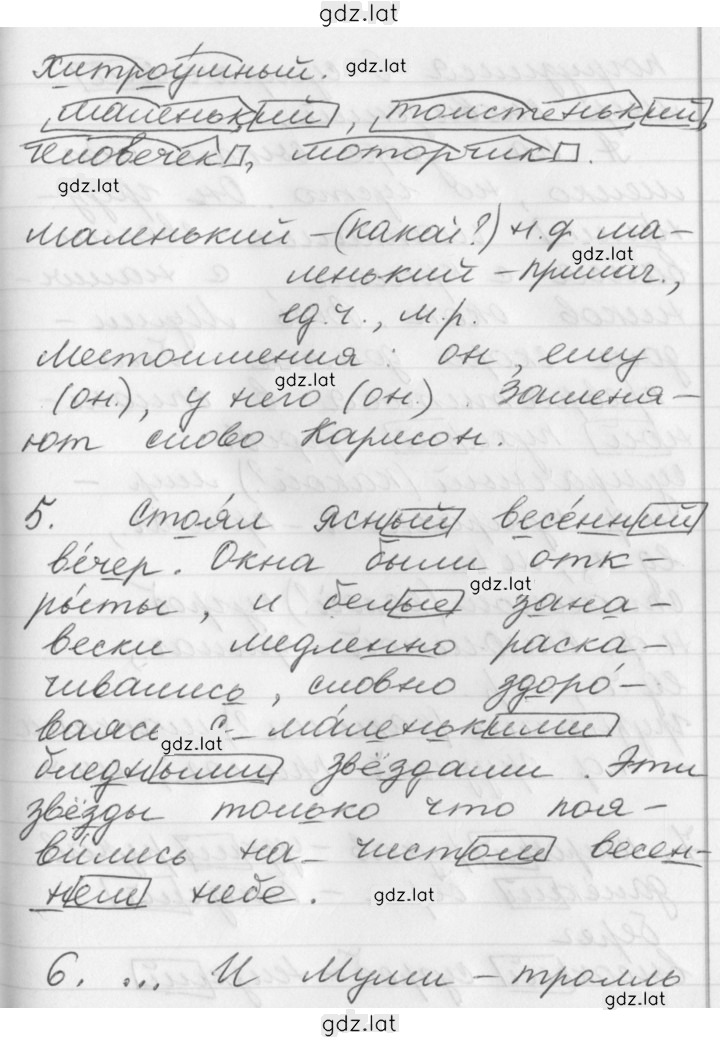 gdz.lat
хитроумный.
gdz.lat
маленький, толстенький,
человечек, моторчик.
gdz.lat
маленький – (какой?) н.ф. ма-
gdz.lat
ленький – прилаг.,
ед.ч., м.р.
Местоимения: он, ему
gdz.lat
(он.), у него (он.). Заменя-
ют слово Карлсон.
5. Стоял ясный весенний
вечер. Окна были отк-
рыты, и белые зана-
gdz.lat
вески медленно раска-
чивались, словно здоро-
ваясь с маленькими
gdz.lat
бледными звёздами. Эти
звёзды только что поя-
вились на чистом весен-
нем небе.
gdz.lat
6. ... И Муми-тролль
gdz.lat
gdz.lat